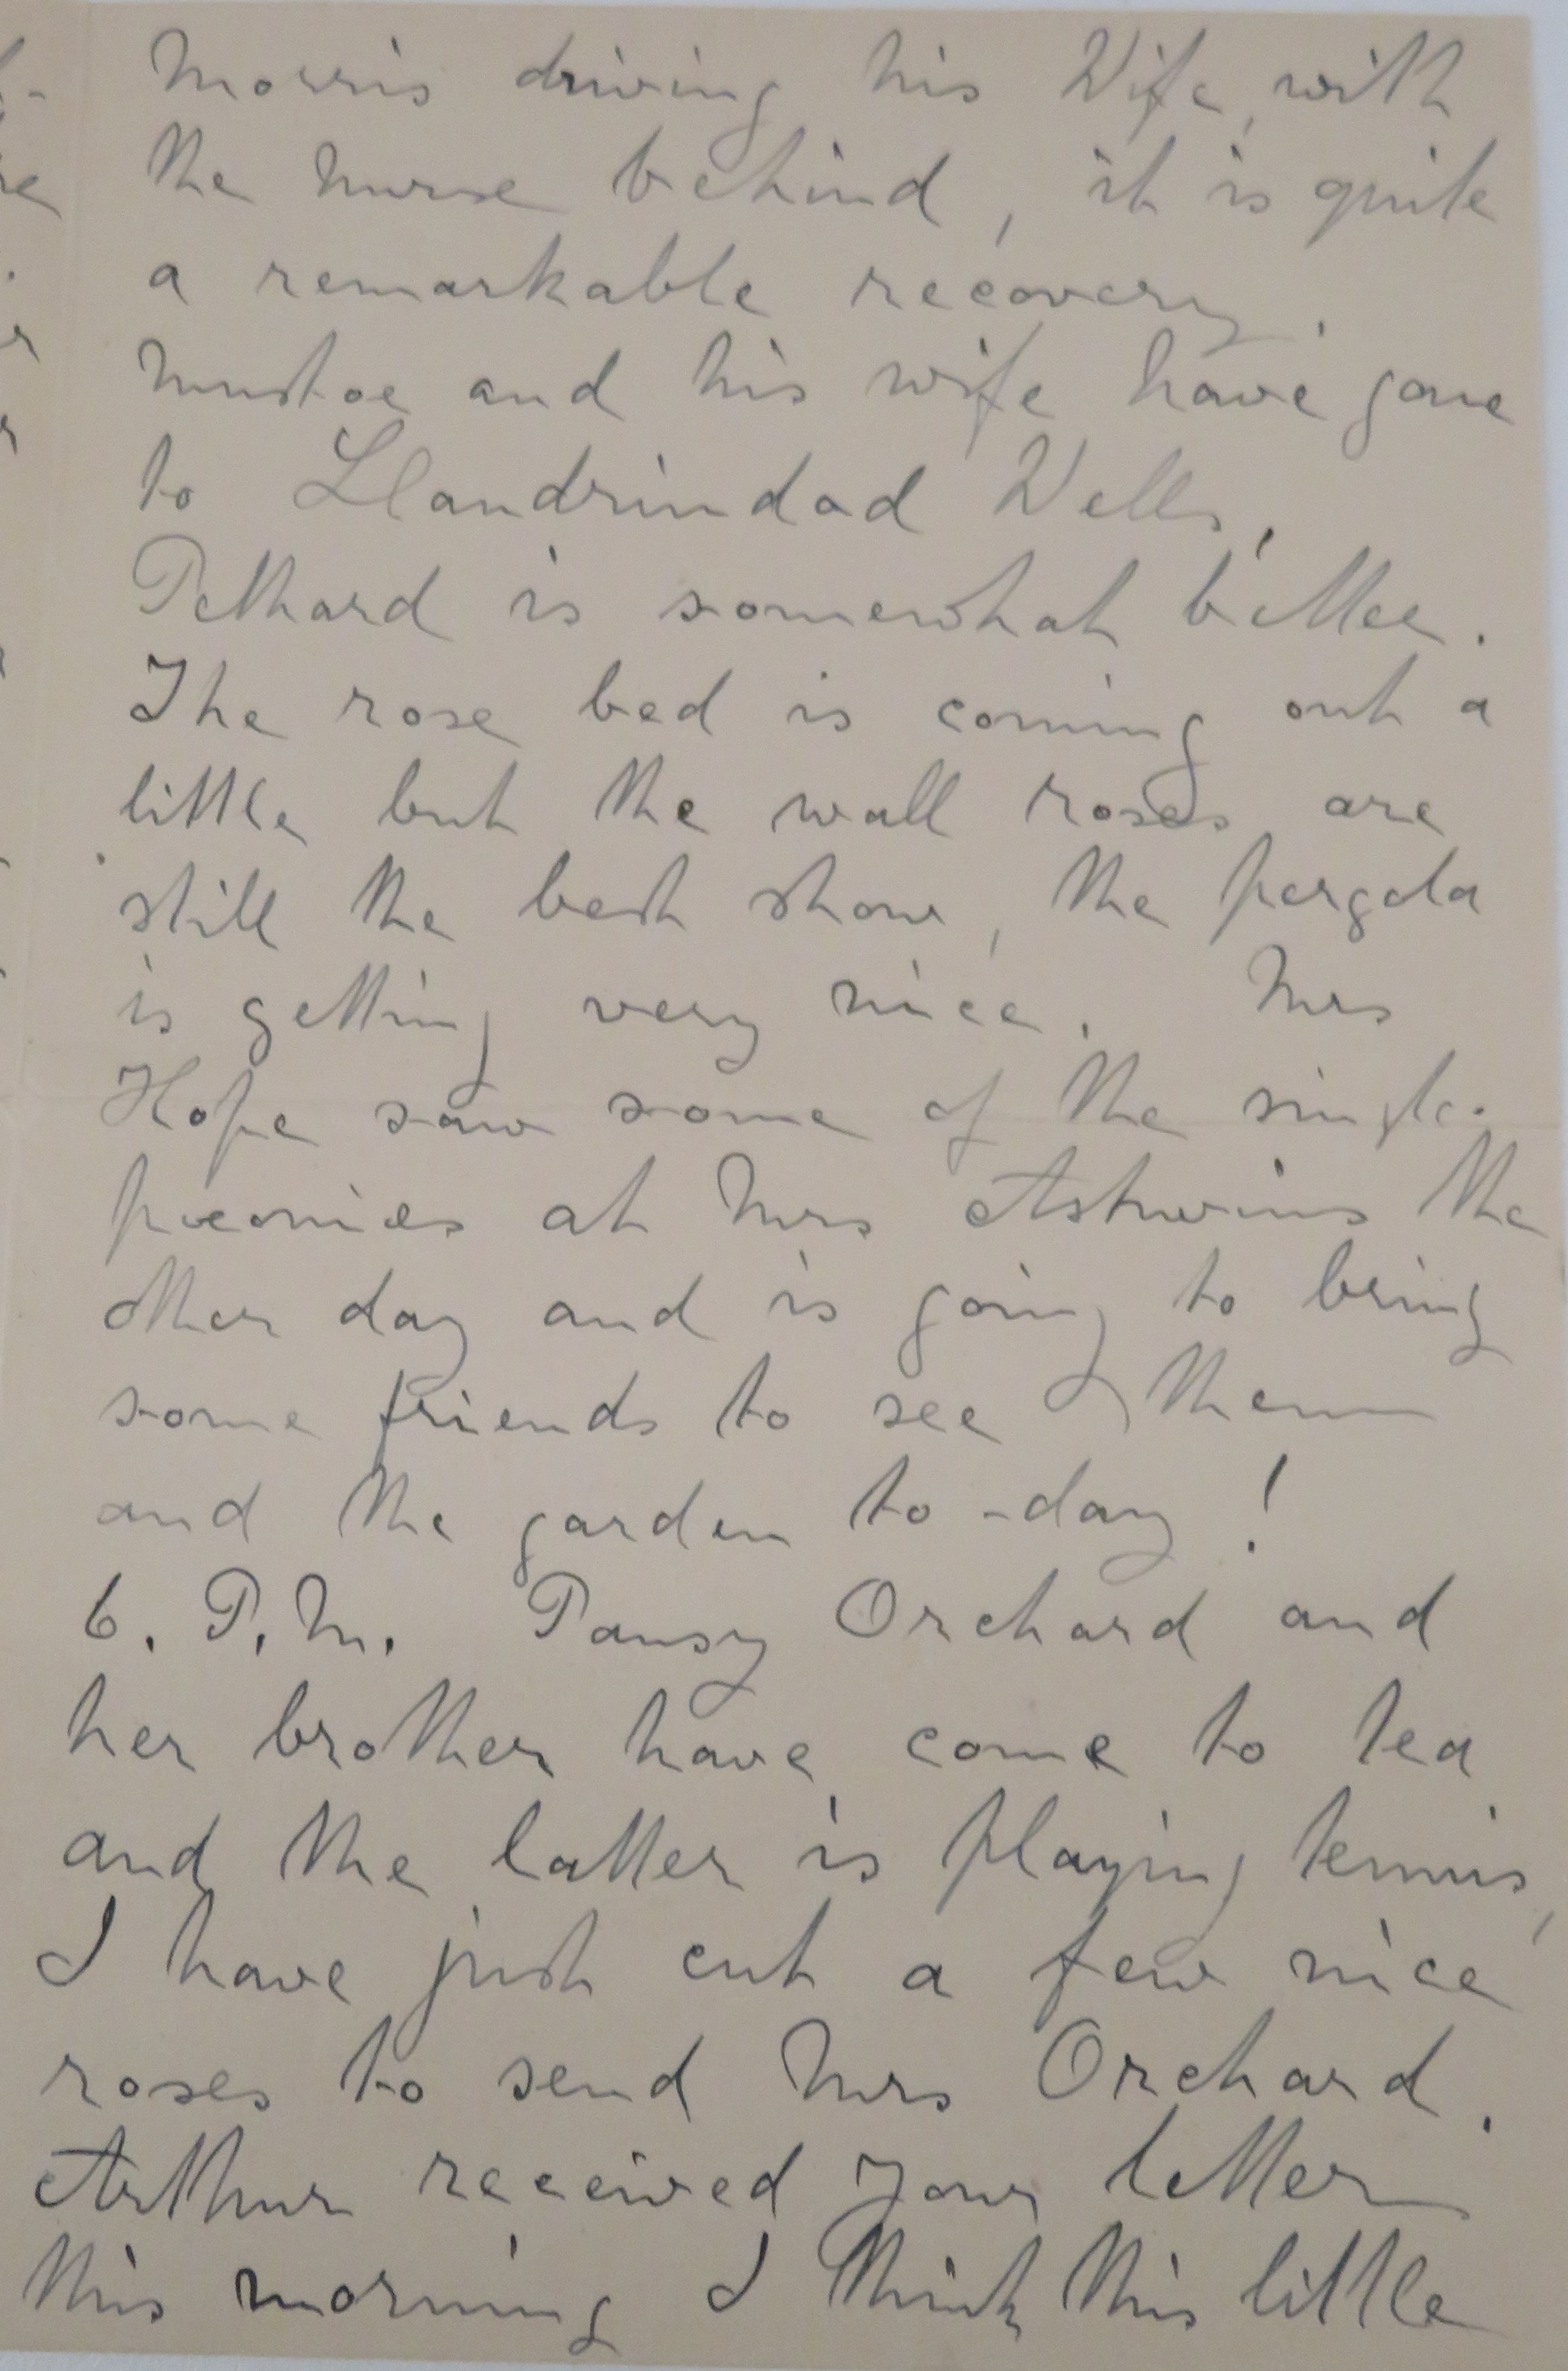 Morris driving his Wife, with
the nurse behind, it is quite
a remarkable recovery.
Mustoe and his wife have gone
to Llandrindod Wells,
Pethard is somewhat better.
The rose bed is coming out a
little but the wall roses are
still the best show, the pergola
is getting very nice. Mrs
Hope saw some of the single
pæonies at Mrs Ashwins the
other day and is going to bring
some friends to see them
and the garden to-day!
6. P.M. Pansy Orchard and
her brother have come to tea
and the latter is playing tennis,
I have just cut a few nice
roses to send Mrs Orchard.
Arthur received your letter
this morning I think this little